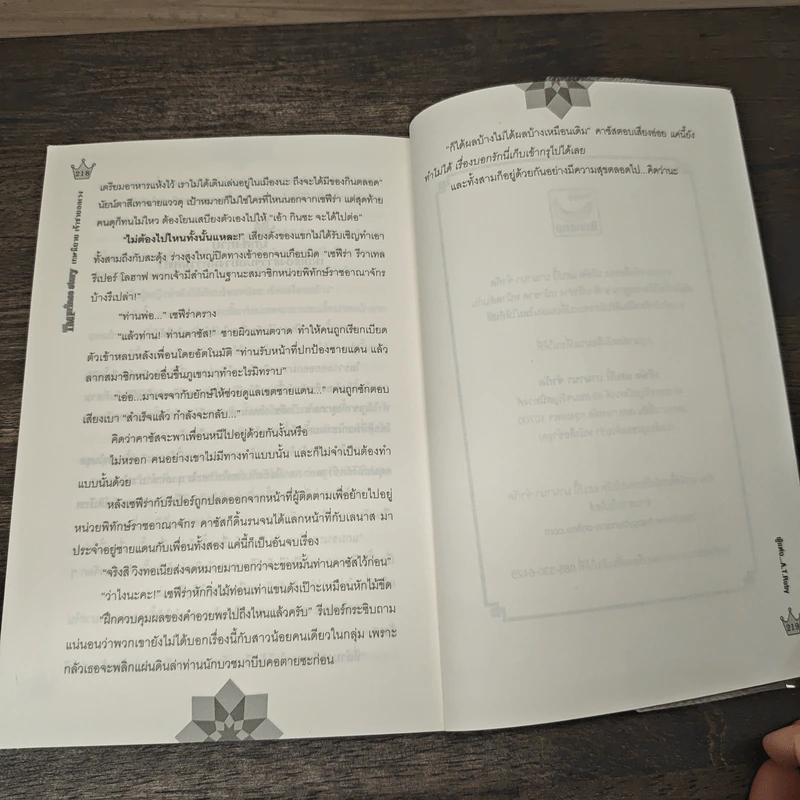 218
The prince story เทพนิยาย เจ้าชายอลวง
เตรียมอาหารแห้งไว้ เราไม่ได้เดินเล่นอยู่ในเมืองนะ ถึงจะได้มีของกินตลอด"
นัยน์ตาสีเทาฉายแววดุ เป้าหมายก็ไม่ใช่ใครที่ไหนนอกจากเซฟีร่า แต่สุดท้าย
คนดุก็ทนไม่ไหว ต้องโยนเสบียงตัวเองไปให้ "เอ้า กินซะ จะได้ไปต่อ"
"ไม่ต้องไปไหนทั้งนั้นแหละ!" เสียงดังของแขกไม่ได้รับเชิญทำเอา
ทั้งสามถึงกับสะดุ้ง ร่างสูงใหญ่ปิดทางเข้าออกจนเกือบมิด "เซฟีร่า รีวาเทล
รีเปอร์ โลฮาฟ พวกเจ้ามีสำนึกในฐานะสมาชิกหน่วยพิทักษ์ราชอาณาจักร
บ้างรึเปล่า!"
"ท่านพ่อ..." เซฟีร่าคราง
"แล้วท่าน! ท่านคาซัส!" ชายผิวแทนตวาด ทำให้คนถูกเรียกเบียด
ตัวเข้าหลบหลังเพื่อนโดยอัตโนมัติ "ท่านรับหน้าที่ปกป้องชายแดน แล้ว
ลากสมาชิกหน่วยอื่นขึ้นภูเขามาทำอะไรมิทราบ"
"เอ่อ...มาเจรจากับยักษ์ให้ช่วยดูแลเขตชายแดน..." คนถูกซักตอบ
เสียงเบา "สำเร็จแล้ว กำลังจะกลับ..."
คิดว่าคาซัสจะพาเพื่อนหนีไปอยู่ด้วยกันงั้นหรือ
ไม่หรอก คนอย่างเขาไม่มีทางทำแบบนั้น และก็ไม่จำเป็นต้องทำ
แบบนั้นด้วย
หลังเซฟีร่ากับรีเปอร์ถูกปลดออกจากหน้าที่ผู้ติดตามเพื่อย้ายไปอยู่
หน่วยพิทักษ์ราชอาณาจักร คาซัสก็ดิ้นรนจนได้แลกหน้าที่กับเลนาส มา
ประจำอยู่ชายแดนกับเพื่อนทั้งสอง แค่นี้ก็เป็นอันจบเรื่อง
"จริงสิ วิงทอเนียส่งจดหมายมาบอกว่าจะขอหมั้นท่านคาซัสไว้ก่อน"
"ว่าไงนะคะ!" เซฟีร่าหักกิ่งไม้ท่อนเท่าแขนดังเป๊าะเหมือนหักไม้ขีด
"ฝึกควบคุมผลของคำอวยพรไปถึงไหนแล้วครับ" รีเปอร์กระซิบถาม
แน่นอนว่าพวกเขายังไม่ได้บอกเรื่องนี้กับสาวน้อยคนเดียวในกลุ่ม เพราะ
กลัวเธอจะพลิกแผ่นดินล่าท่านนักบวชมาบีบคอตายซะก่อน
"ก็ได้ผลบ้างไม่ได้ผลบ้างเหมือนเดิม" คาซัสตอบเสียงอ่อย แค่นี้ยัง
ทำไม่ได้ เรื่องบอกรักนี่เก็บเข้ากรุไปได้เลย
และทั้งสามก็อยู่ด้วยกันอย่างมีความสุขตลอดไป...คิดว่านะ
ผู้แต่ง...A.T.Ruby
219